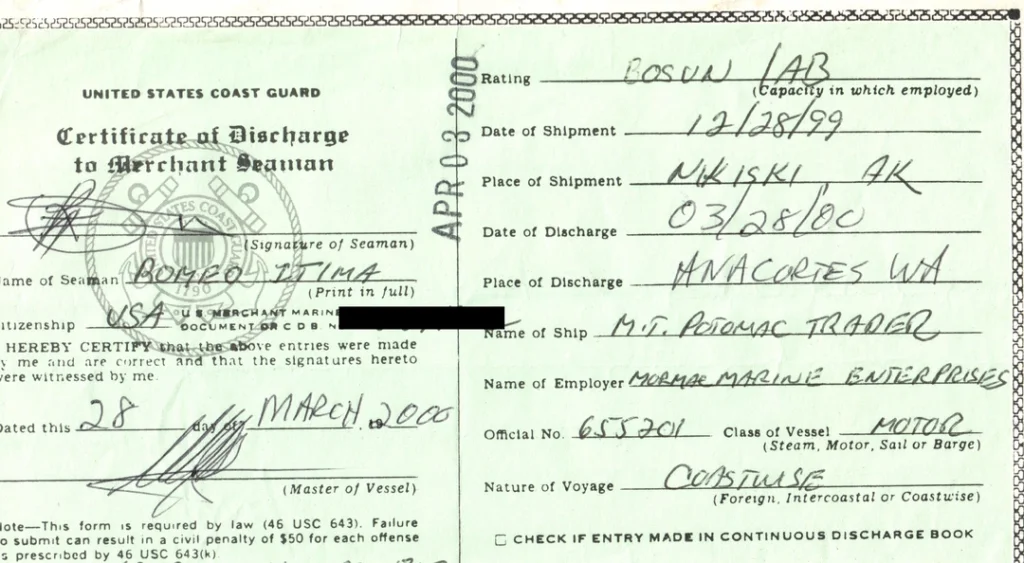 UNITED STATES COAST GUARD
Certificate of Discharge
to Merchant Seaman
(Signature of Seaman)
ame of Seaman ROMEO ITIMA
(Print in full)
itizenship USA U S MERCHANT MARINE
DOCUMENT OR C D B. N
HEREBY CERTIFY that the above entries were made
y me and are correct and that the signatures hereto
ere witnessed by me.
ated this 28 day of MARCH, 2000
(Master of Vessel)
ote—This form is required by law (46 USC 643). Failure
o submit can result in a civil penalty of $50 for each offense
s prescribed by 46 USC 643(k).
APR 03 2000
Rating BOSUN / AB
(Capacity in which employed)
Date of Shipment 12/28/99
Place of Shipment NIKISKI, AK
Date of Discharge 03/28/00
Place of Discharge ANACORTES WA
Name of Ship M.T. POTOMAC TRADER
Name of Employer MORMAC MARINE ENTERPRISES
Official No. 655201 Class of Vessel MOTOR
(Steam, Motor, Sail or Barge)
Nature of Voyage COASTWISE
(Foreign, Intercoastal or Coastwise)
CHECK IF ENTRY MADE IN CONTINUOUS DISCHARGE BOOK